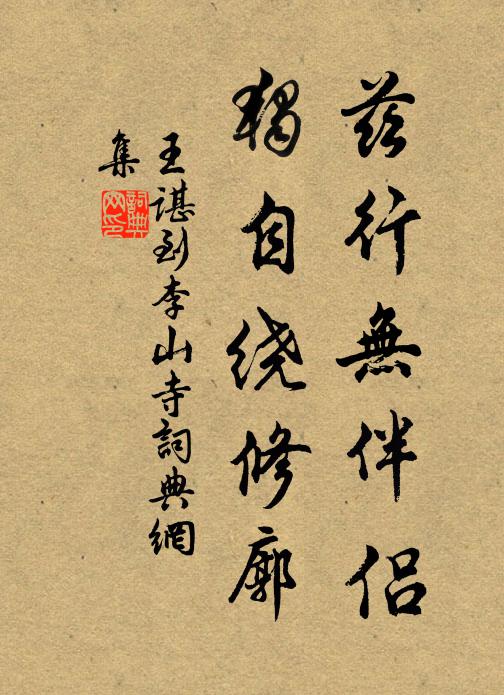 茲行無伴侶
獨自绕修廊
王諶到李山寺詞典網
集
詞典
网印